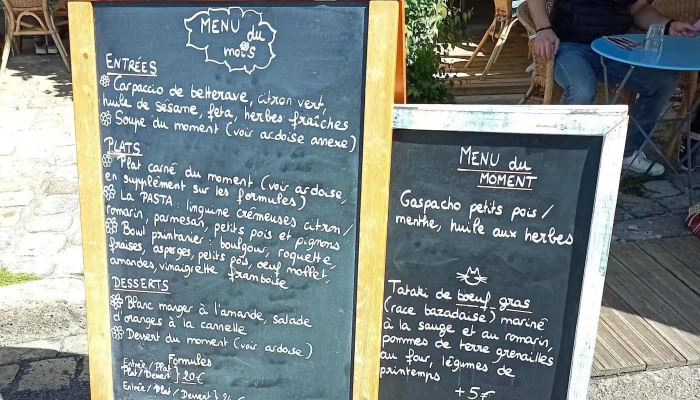 MENU du
mois
ENTRÉES
Carpaccio de betterave, citron vert,
huile de sésame, feta, herbes fraîches
Soupe du moment (voir ardoise annexe)
PLATS
Plat carné du moment (voir ardoise,
en supplément sur les formules)
La PASTA : linguine crémeuses citron/
romarin, parmesan, petits pois et pignons
Bowl printanier : boulgour, roquette,
fraises, asperges, petits pois, oeuf mollet,
amandes, vinaigrette framboise
DESSERTS
Blanc manger à l'amande, salade
d'oranges à la cannelle
Dessert du moment (voir ardoise)
Formules
Entrée/Plat
Plat/Dessert } 20€
Entrée/Plat/Dessert }
MENU du
MOMENT
Gaspacho petits pois/
menthe, huile aux herbes
Tataki de boeuf gras
(race bazadaise) mariné
à la sauge et au romarin,
pommes de terre grenailles
au four, légumes de
printemps
+5€